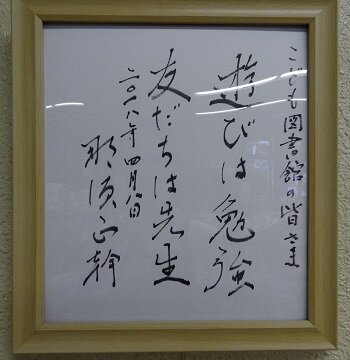 こども図書館の皆さま
遊びは勉強
友だちは先生
二〇一八年四月八日
那須正幹